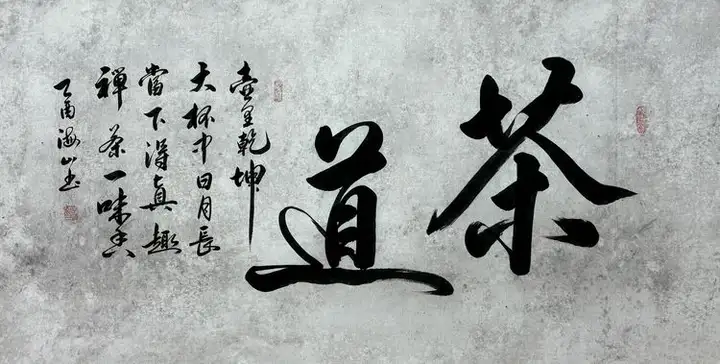 茶道
壺里乾坤
大杯中日月長
當下得真趣
禪茶一味香
酉海山书